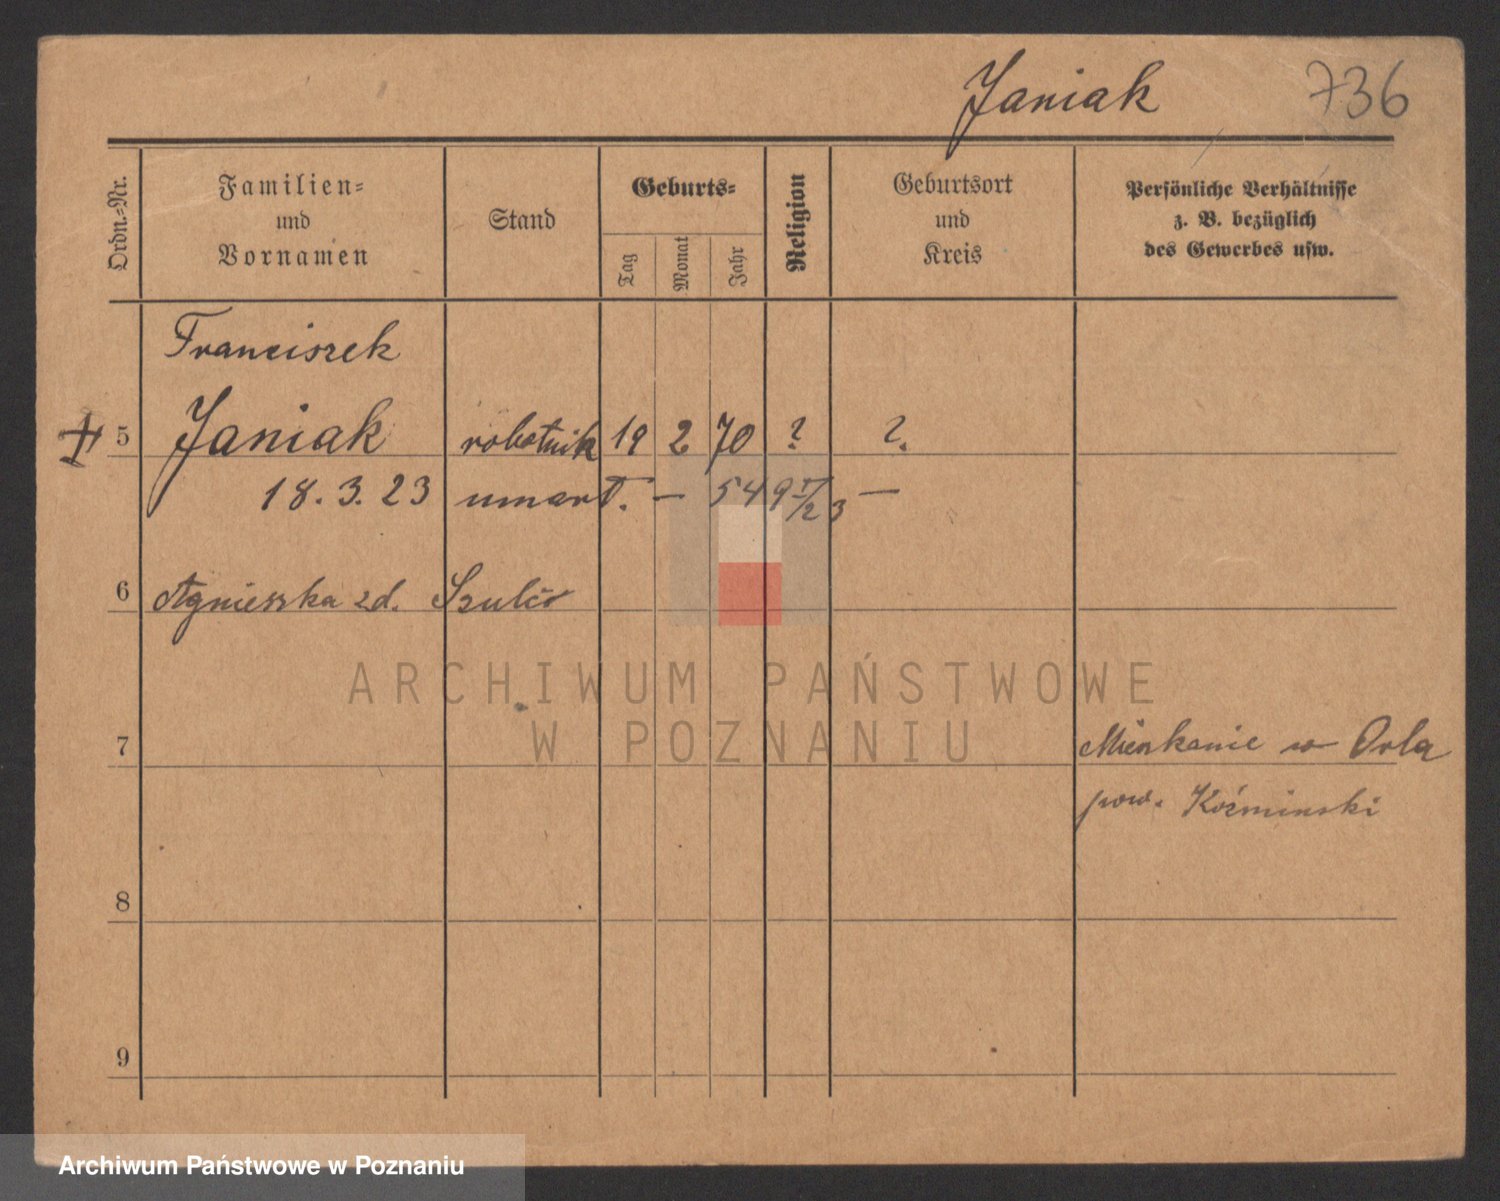 Janiak 736
Ordn.-Nr.
Familien-
und
Vornamen
Stand
Geburts-
Tag
Monat
Jahr
Religion
Geburtsort
und
Kreis
Persönliche Verhältnisse
z. B. bezüglich
des Gewerbes usw.
Franciszek
5 Janiak robotnik 19 2 70 ? ?.
18. 3. 23 umart. — 549 V/23 —
6 Agnieszka zd.
ARCHIWUM PAŃSTWOWE
W POZNANIU
7 Mieszkanie w Orla
pow. Koźminski
8
9
Archiwum Państwowe w Poznaniu